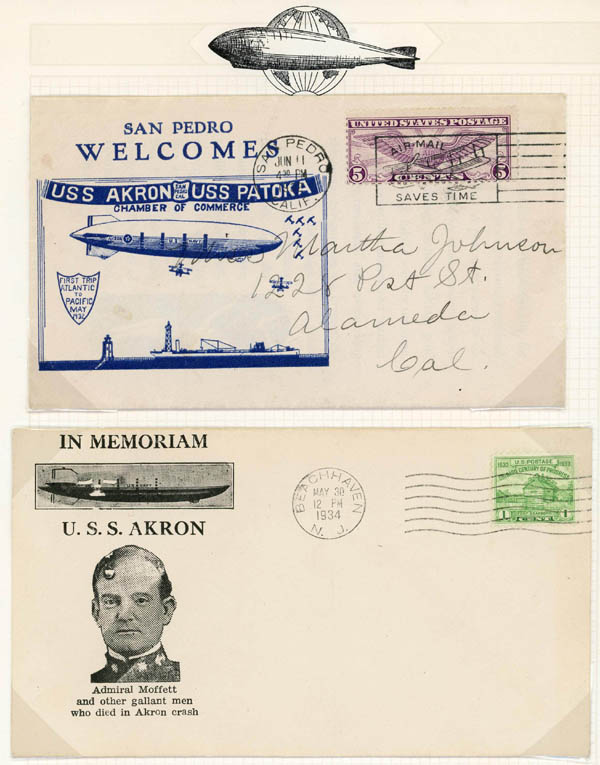 SAN PEDRO
WELCOMES
USS AKRON SAN PEDRO CAL USS PATOKA
CHAMBER OF COMMERCE
FIRST TRIP
ATLANTIC
TO
PACIFIC
MAY
1932
SAN PEDRO
JUN 11
4 30 PM
CALIF.
UNITED STATES POSTAGE
AIR MAIL
5 CENTS 5
SAVES TIME
Miss Martha Johnson
1228 Post St.
Alameda
Cal.
IN MEMORIAM
U. S. S. AKRON
Admiral Moffett
and other gallant men
who died in Akron crash
BEACH HAVEN
MAY 30
12 PM
1934
N. J.
U.S. POSTAGE
1833 1933
CENTURY OF PROGRESS
1 CENT 1